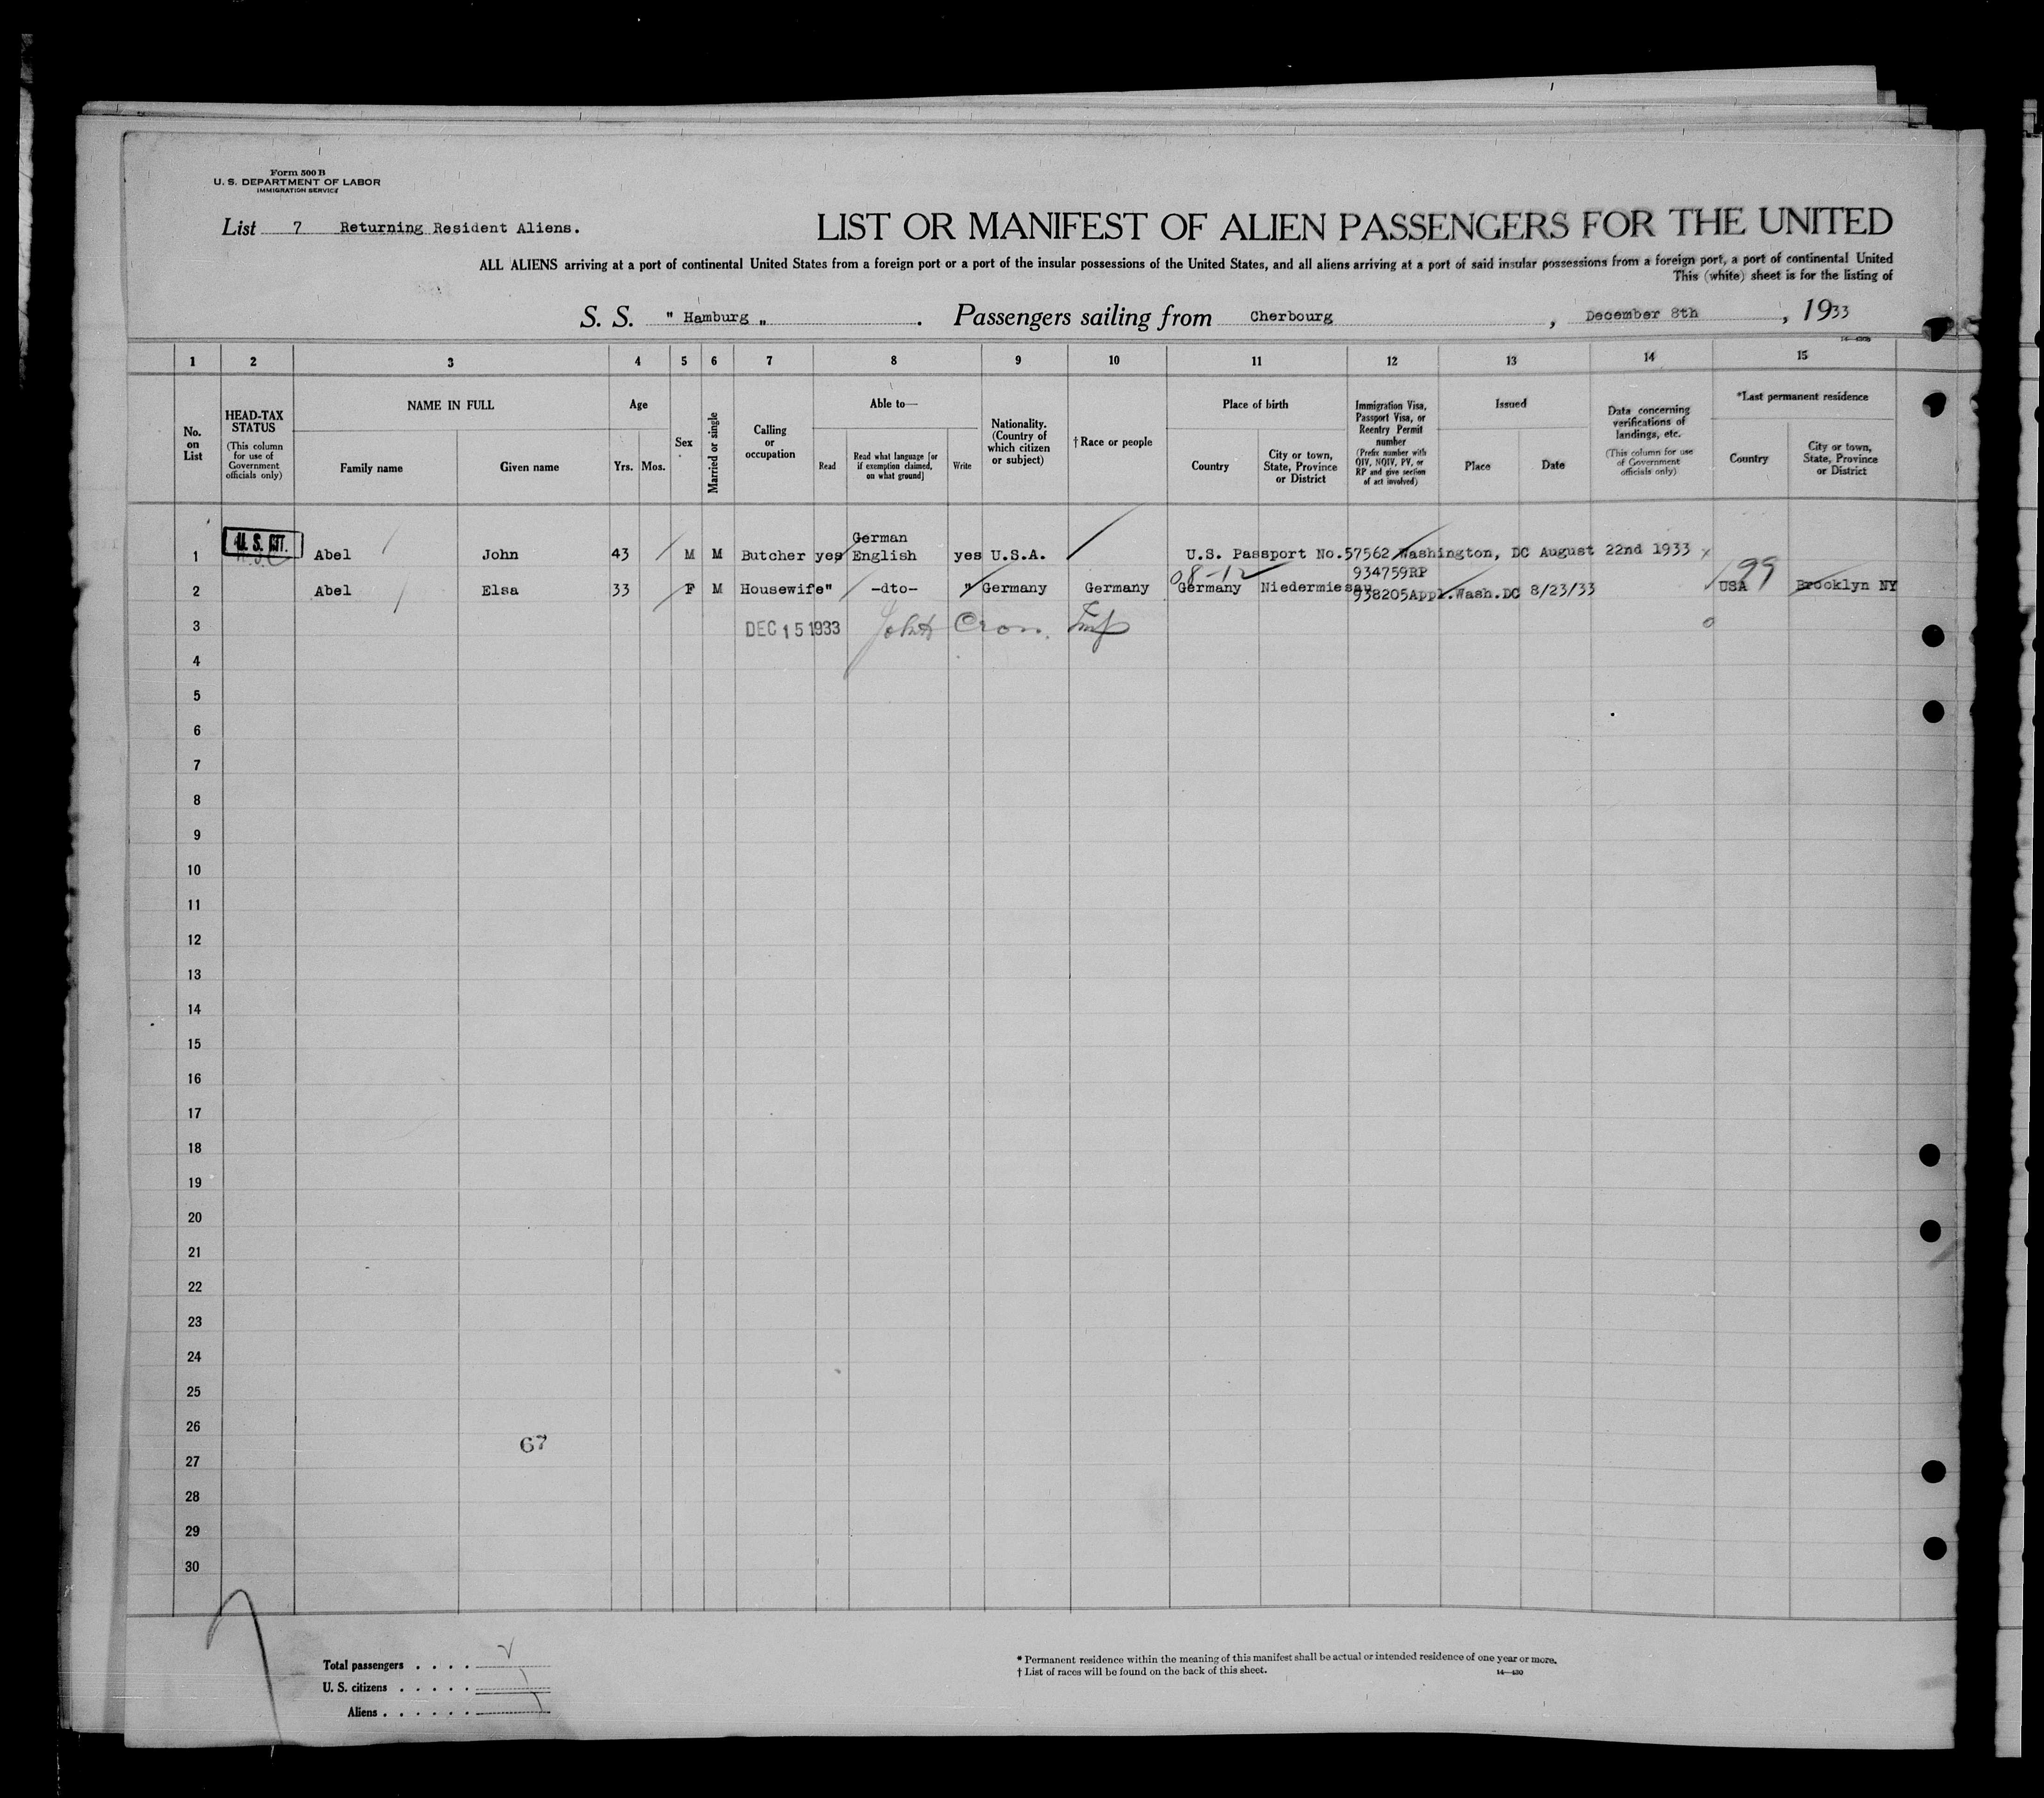 Form 500 B
U. S. DEPARTMENT OF LABOR
IMMIGRATION SERVICE
List 7 Returning Resident Aliens.
LIST OR MANIFEST OF ALIEN PASSENGERS FOR THE UNITED
ALL ALIENS arriving at a port of continental United States from a foreign port or a port of the insular possessions of the United States, and all aliens arriving at a port of said insular possessions from a foreign port, a port of continental United
This (white) sheet is for the listing of
S. S. " Hamburg " . Passengers sailing from Cherbourg , December 8th , 1933
1 2 3 4 5 6 7 8 9 10 11 12 13 14 15
No. on List
HEAD-TAX STATUS (This column for use of Government officials only)
NAME IN FULL
Family name Given name
Age
Yrs. Mos.
Sex
Married or single
Calling or occupation
Able to—
Read
Read what language [or if exemption claimed, on what ground]
Write
Nationality. (Country of which citizen or subject)
† Race or people
Place of birth
Country
City or town, State, Province or District
Immigration Visa, Passport Visa, or Reentry Permit number (Prefix number with QIV, NQIV, PV, or RP and give section of act involved)
Issued
Place Date
Data concerning verifications of landings, etc. (This column for use of Government officials only)
*Last permanent residence
Country
City or town, State, Province or District
German
1 U. S. CIT. Abel John 43 M M Butcher yes English yes U.S.A. U.S. Passport No.57562 Washington, DC August 22nd 1933 x
08-12 934759RP 99
2 Abel Elsa 33 F M Housewife " -dto- " Germany Germany Germany Niedermiesau 938205Appl.Wash.DC 8/23/33 USA Brooklyn NY
3 DEC 15 1933 John Cron. Insp 0
4
5
6
7
8
9
10
11
12
13
14
15
16
17
18
19
20
21
22
23
24
25
26
67
27
28
29
30
Total passengers . . . .
U. S. citizens . . . . .
Aliens . . . . . .
* Permanent residence within the meaning of this manifest shall be actual or intended residence of one year or more.
† List of races will be found on the back of this sheet. 14—430